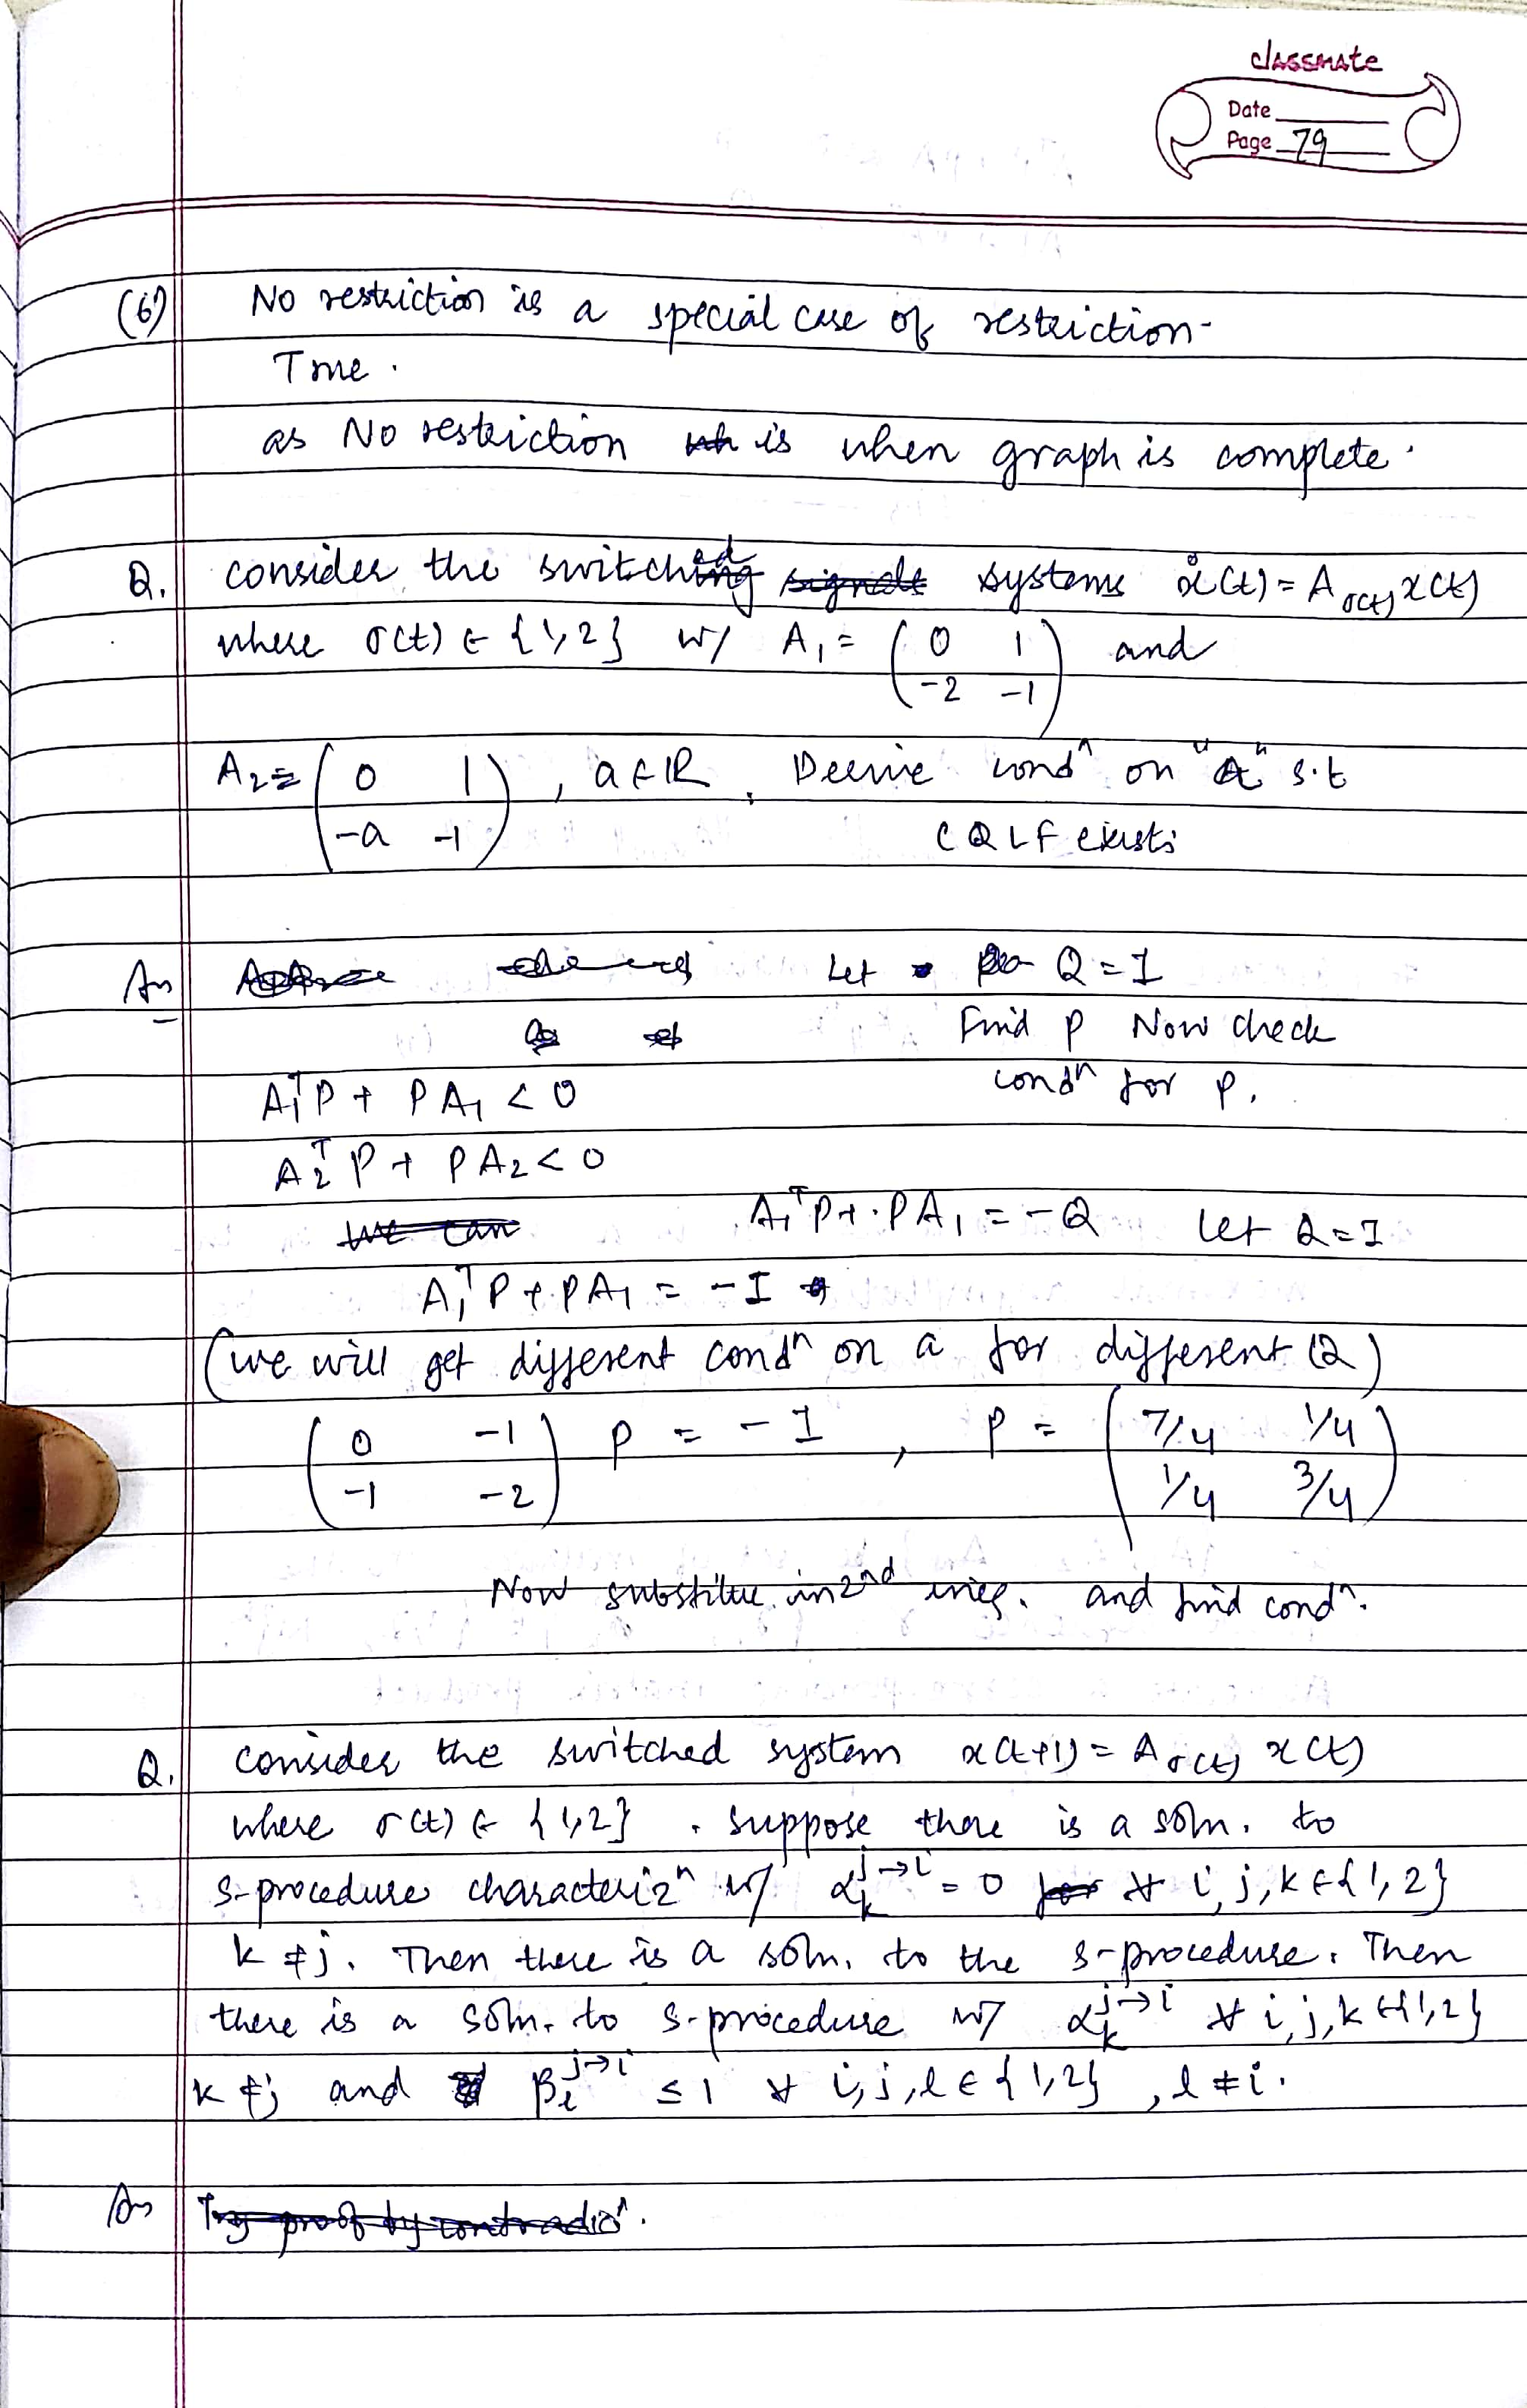 classmate
Date
Page 79
(6) No restriction is a special case of restriction.
True.
as No restriction is when graph is complete.
Q. consider the switched systems ẋ(t) = A_σ(t) x(t)
where σ(t) ∈ {1,2} w/ A₁ = ( 0 1 ; -2 -1 ) and
A₂ = ( 0 1 ; -a -1 ), a ∈ ℝ. Derive condⁿ on "a" s.t
CQLF exists
Ans Let Q = I
Find P Now check
condⁿ for P.
A₁ᵀP + PA₁ < 0
A₂ᵀP + PA₂ < 0
A₁ᵀP + PA₁ = -Q Let Q = I
A₁ᵀP + PA₁ = -I
(we will get different condⁿ on a for different Q)
( 0 -1 ; -1 -2 ) P = -I , P = ( 7/4 1/4 ; 1/4 3/4 )
Now substitue in 2nd ineq. and find condⁿ.
Q. consider the switched system x(t+1) = A_σ(t) x(t)
where σ(t) ∈ {1,2}. suppose there is a soln. to
S-procedure characterizⁿ w/ α_k^{j→i} = 0 ∀ i, j, k ∈ {1,2}
k ≠ j. Then there is a soln. to the S-procedure. Then
there is a soln. to S-procedure w/ α_k^{j→i} ∀ i, j, k ∈ {1,2}
k ≠ j and β_l^{j→i} ≤ 1 ∀ i, j, l ∈ {1,2}, l ≠ i.
Ans Try proof by contradicⁿ.